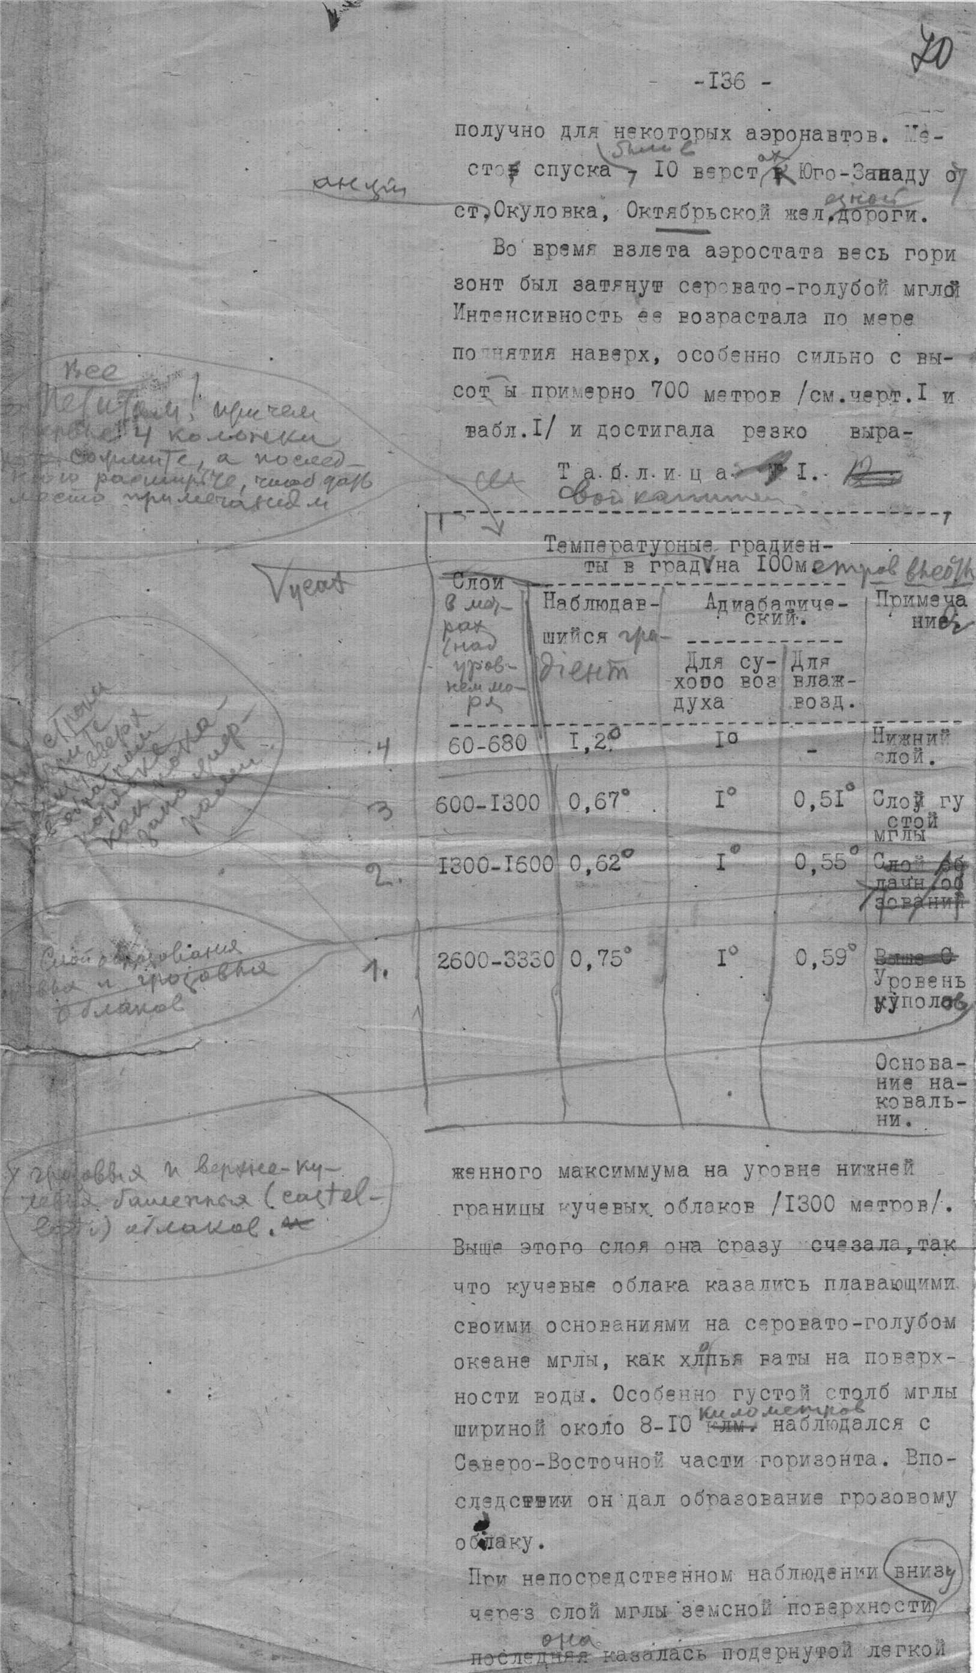 70
-I36 -
получно для некоторых аэронавтов. Ме-
были в
сто спуска, 10 верст ах к Юго-Западу от
ст. Окуловка, Октябрьской жел. дороги.
Во время взлета аэростата весь гори
зонт был затянут серовато-голубой мглой
Интенсивность ее возрастала по мере
поднятия наверх, особенно сильно с вы-
соты примерно 700 метров /см.черт.I и
табл.I/ и достигала резко выра-
Т а б л и ц а № I.
Все
петитом! причем
первые 4 колонки
сожмите, а послед-
нюю расширьте, чтоб дать
место примечаниям
Температурные градиен-
ты в град. на 100 метров высоты
Слои
в мет-
рах
(над
уров-
нем мо-
ря)
Наблюдав-
шийся гра-
диент
Адиабатиче-
ский.
Для су-
хого воз
духа
Для
влаж-
возд.
Примеча
ния
4 60-680 I,2° I° - Нижний
слой.
3 600-I300 0,67° I° 0,5I° Слой гу
стой
мглы
2. I300-I600 0,62° I° 0,55° Слой об
лачн об
зований
1. 2600-3330 0,75° I° 0,59° Выше С
Уровень
куполов
Слой образования
и грозовых
облаков
Основа-
ние на-
коваль-
ни.
грозовых и верхне-ку-
чевых башенных (castel-
lati) облаков.
женного максиммума на уровне нижней
границы кучевых облаков /I300 метров/.
Выше этого слоя она сразу счезала, так
что кучевые облака казались плавающими
своими основаниями на серовато-голубом
океане мглы, как хлопья ваты на поверх-
ности воды. Особенно густой столб мглы
километров
шириной около 8-I0 клм. наблюдался с
Северо-Восточной части горизонта. Впо-
следствии он дал образование грозовому
облаку.
При непосредственном наблюдении внизу
через слой мглы земсной поверхности
она
последняя казалась подернутой легкой